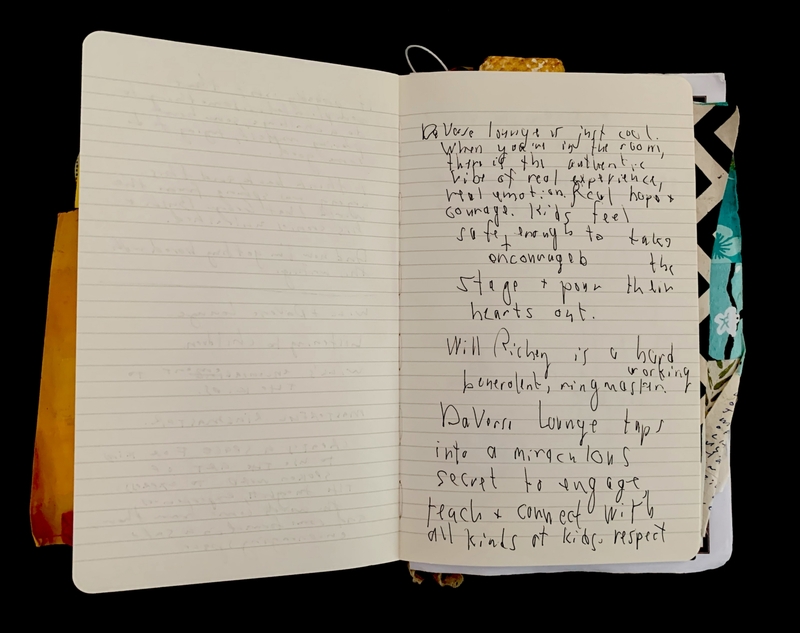 DaVerse lounge is just cool.
When you're in the room,
there is the authentic
vibe of real experience,
real emotion. Real hope +
courage. Kids feel
safe enough to take
+
encouraged the
stage + pour their
hearts out.
Will Richey is a hard
working
benevolent, ringmaster.
DaVerse Lounge taps
into a miraculous
secret to engage
teach + connect with
all kinds of kids. respect